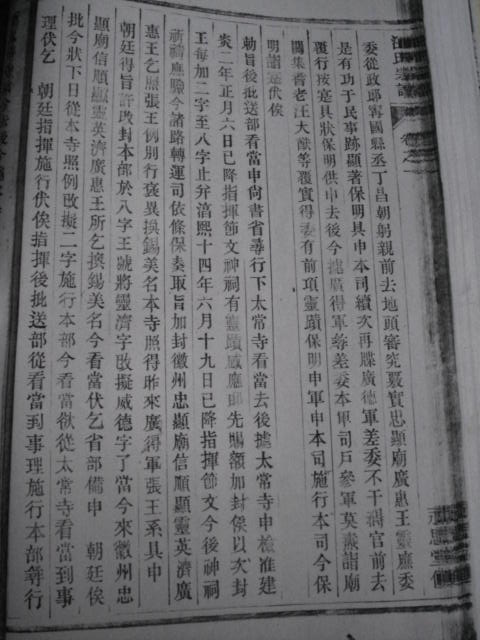 汪氏
卷之
委從政郎寗國縣丞丁昌朝躬親前去地頭審究覆實忠顯廟廣惠王靈應委
是有功于民事跡顯著保明具申本司續次再牒廣德軍差委不干碍官前去
覆行按寔具狀保明供申去後今據廣得軍養差委本軍司戶參軍莫諴詣廟
闔集耆老汪大猷等覆實得委有前項靈蹟保明申軍申本司施行本司今保
明詣寔伏俟
勅旨後批送部看當申尙書省尋行下太常寺看當去後據太常寺申檢准建
炎二年正月六日已降指揮節文神祠有靈蹟感應即先賜額加封係以次封
王每加二字至八字止并湻熙十四年六月十九日已降指揮節文今後神祠
祈禱應驗令諸路轉運司依條保奏取旨加封徽州忠顯廟信順顯靈英濟廣
惠王乞照張王例別行褒異換錫美名本寺照得昨來廣得軍張王系具申
朝廷得旨許改封本部於八字王號將靈濟字改擬威德字了當今來徽州忠
顯廟信順顯靈英濟廣惠王所乞換錫美名今看當伏乞省部備申 朝廷俟
批今狀下日從本寺照例改擬二字施行本部今看當欲從太常寺看當到事
理伏乞 朝廷指揮施行伏俟指揮後批送部從看當到事理施行本部尋行